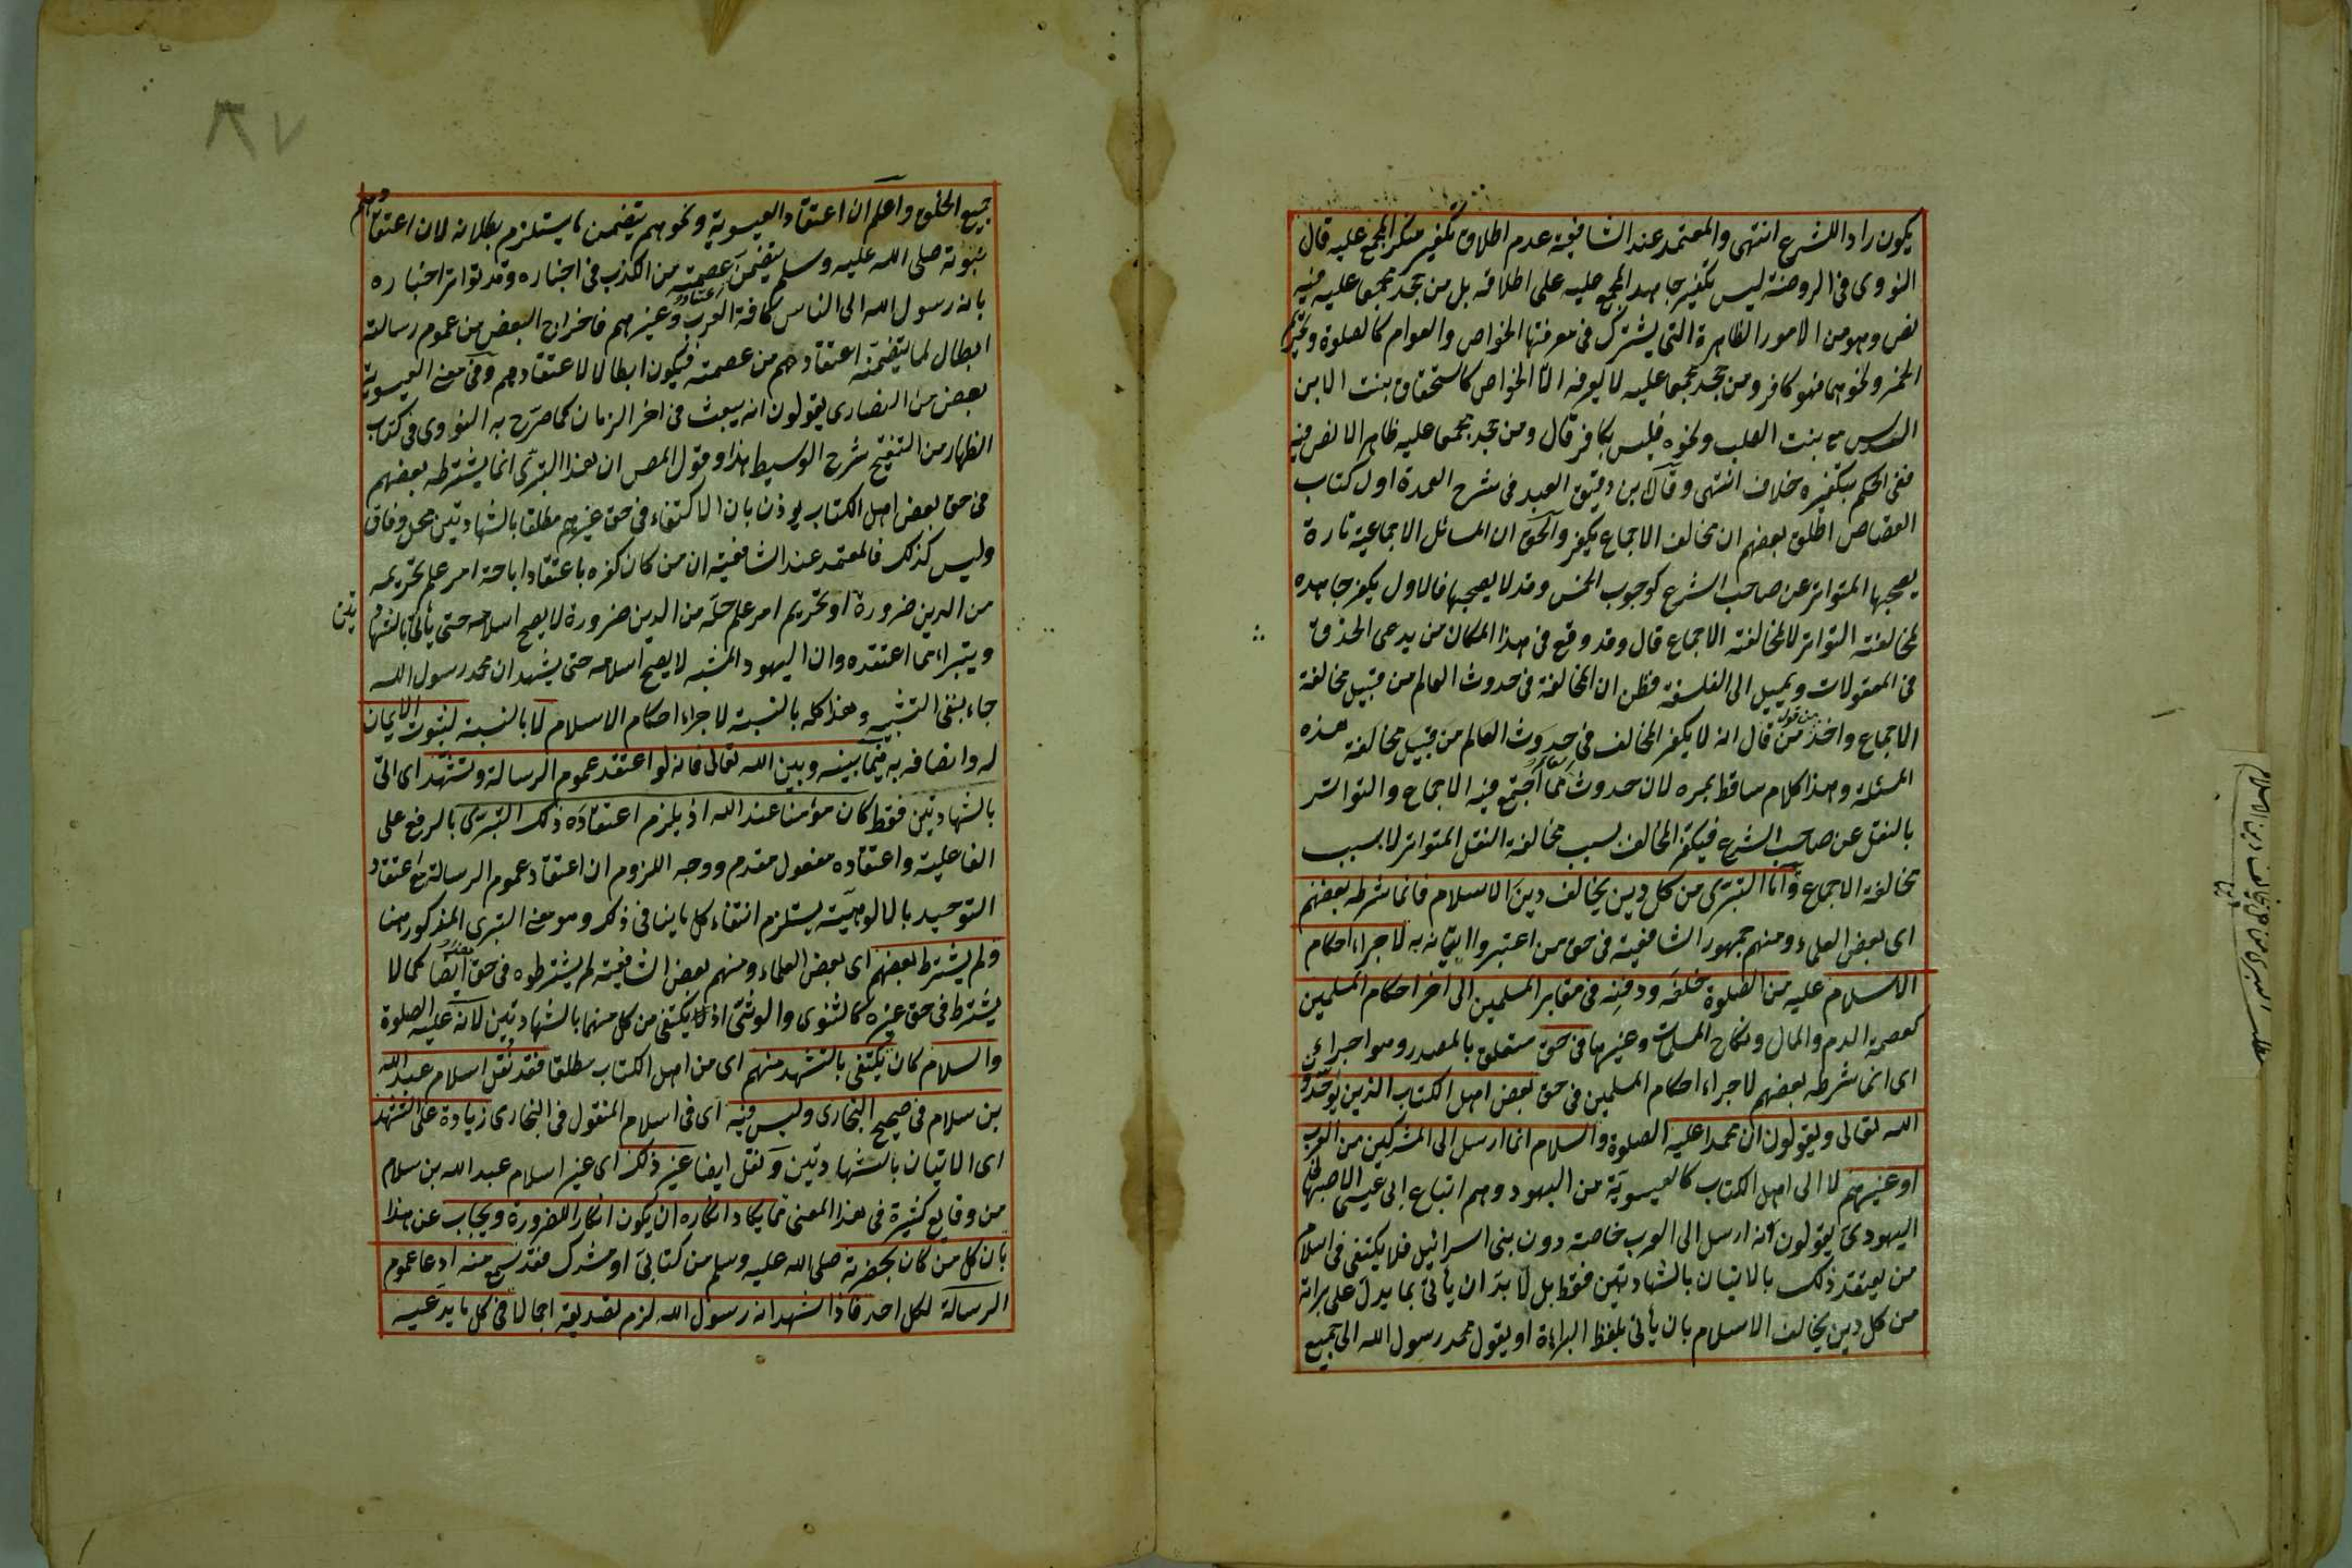 يكون رادا للشرع انتهى والمعتمد عند الشافعية عدم اطلاق تكفير منكر المجمع عليه قال
النووى فى الروضة ليس تكفير جاحد المجمع عليه على اطلاقه بل من جحد مجمعا عليه فيه
نص وهو من الامور الظاهرة التى يشترك فى معرفتها الخواص والعوام كالصلوة وتحريم
الخمر ونحوهما فهو كافر ومن جحد مجمعا عليه لا يعرفه الا الخواص كاستحقاق بنت الابن
السدس مع بنت الصلب ونحوه فليس بكافر قال ومن جحد مجمعا عليه ظاهرا لا نص فيه
ففى الحكم بتكفيره خلاف انتهى وقال ابن دقيق العيد فى شرح العمدة اول كتاب
القصاص اطلق بعضهم ان مخالف الاجماع يكفر والحق ان المسائل الاجماعية تارة
يصحبها المتواتر عن صاحب الشرع كوجوب الخمس وقد لا يصحبها فالاول يكفر جاحده
لمخالفته التواتر لا لمخالفته الاجماع قال وقد وقع فى هذا المكان من يدعى الحذق
فى المعقولات ويميل الى الفلسفة فظن ان المخالفة فى حدوث العالم من قبيل مخالفة
الاجماع واخذ من قول من قال انه لا يكفر المخالف فى حدوث العالم من قبيل مخالفة هذه
المسئلة وهذا كلام ساقط بمره لان حدوث العالم مما اجتمع فيه الاجماع والتواتر
بالنقل عن صاحب الشرع فيكفر المخالف بسبب مخالفة النقل المتواتر لا بسبب
مخالفة الاجماع وأما التبرى من كل دين يخالف دين الاسلام فانما شرطه بعضهم
اى بعض العلماء ومنهم جمهور الشافعية فى حق من اعتبروا اتيانه به لاجراء احكام
الاسلام عليه من الصلوة خلفه ودفنه فى مقابر المسلمين الى اخر احكام المسلمين
كعصمة الدم والمال ونكاح المسلمات وغيرها فى حق متعلق بالمصدر وهو اجراء
اى انما شرطه بعضهم لاجراء احكام المسلمين فى حق بعض اهل الكتاب الذين يوحدون
الله تعالى ويقولون ان محمدا عليه الصلوة والسلام انما ارسل الى المشركين من العرب
او غيرهم لا الى اهل الكتاب كالعيسوية من اليهود وهم اتباع ابى عيسى الاصبهانى
اليهودى يقولون انه ارسل الى العرب خاصة دون بنى اسرائيل فلا يكتفى فى اسلام
من يعتقد ذلك بالاتيان بالشهادتين فقط بل لا بد ان يأتى بما يدل على براته
من كل دين يخالف الاسلام بان يأتى بلفظ البراءة او يقول محمد رسول الله الى جميع
٨٧
جميع الخلق واعلم ان اعتقاد العيسوية ونحوهم يتضمن ما يستلزم بطلانه لان اعتقادهم
نبوته صلى الله عليه وسلم يتضمن عصمته من الكذب فى اخباره وقد تواتر اخباره
بانه رسول الله الى الناس كافة العرب وغيرهم فاخراج البعض من عموم رسالته
ابطال لما يتضمنه اعتقادهم من عصمته فيكون ابطالا لاعتقادهم وفى معنى العيسوية
بعض من النصارى يقولون انه يبعث فى اخر الزمان كما صرح به النووى فى كتاب
الظهار من التنقيح شرح الوسيط هذا وقول المص ان هذا التبرى انما يشترطه بعضهم
فى حق بعض اهل الكتاب يوذن بان الاكتفاء فى حق غيرهم مطلقا بالشهادتين محل وفاق
وليس كذلك فالمعتمد عند الشافعية ان من كان كفره باعتقاد اباحة امر علم تحريمه
من الدين ضرورة او تحريم امر علم حله من الدين ضرورة لا يصح اسلامه حتى يأتى بالشهادتين
ويتبراء مما اعتقده وان اليهود المشبه لا يصح اسلامه حتى يشهد ان محمد رسول الله
جاء بنفى التشبيه وهذا كله بالنسبة لاجراء احكام الاسلام لا بالنسبة لثبوت الايمان
له واتصافه به فيما بينه وبين الله تعالى فانه لو اعتقد عموم الرسالة وتشهد اى اتى
بالشهادتين فقط كان مؤمنا عند الله اذ يلزم اعتقاده ذلك التبرى بالرفع على
الفاعلية واعتقاده مفعول مقدم ووجه اللزوم ان اعتقاد عموم الرسالة مع اعتقاد
التوحيد بالالوهية يستلزم انتفاء كل ما ينافى ذلك وهو معنى التبرى المذكور هنا
ولم يشترط بعضهم اى بعض العلماء ومنهم بعض الشافعية لم يشترطوه فى حق ايضا كما لا
يشترط فى حق غيره كالثنوى والوثنى اذ يكتفى من كل منهما بالشهادتين لانه عليه الصلوة
والسلام كان يكتفى بالتشهد منهم اى من اهل الكتاب مطلقا فقد نقل اسلام عبد الله
بن سلام فى صحيح البخارى وليس فيه اى فى اسلام المنقول فى البخارى زيادة على التشهد
اى الاتيان بالشهادتين ونقل ايضا غير ذلك اى غير اسلام عبد الله بن سلام
من وقايع كثيرة فى هذا المعنى مما يكاد انكاره ان يكون انكارا للضرورة ويجاب عن هذا
بان كل من كان بحضرته صلى الله عليه وسلم من كتابى او مشرك فقد سمع منه ادعا عموم
الرسالة لكل احد فاذا شهد انه رسول الله لزم تصديقه اجمالا فى كل ما يدعيه